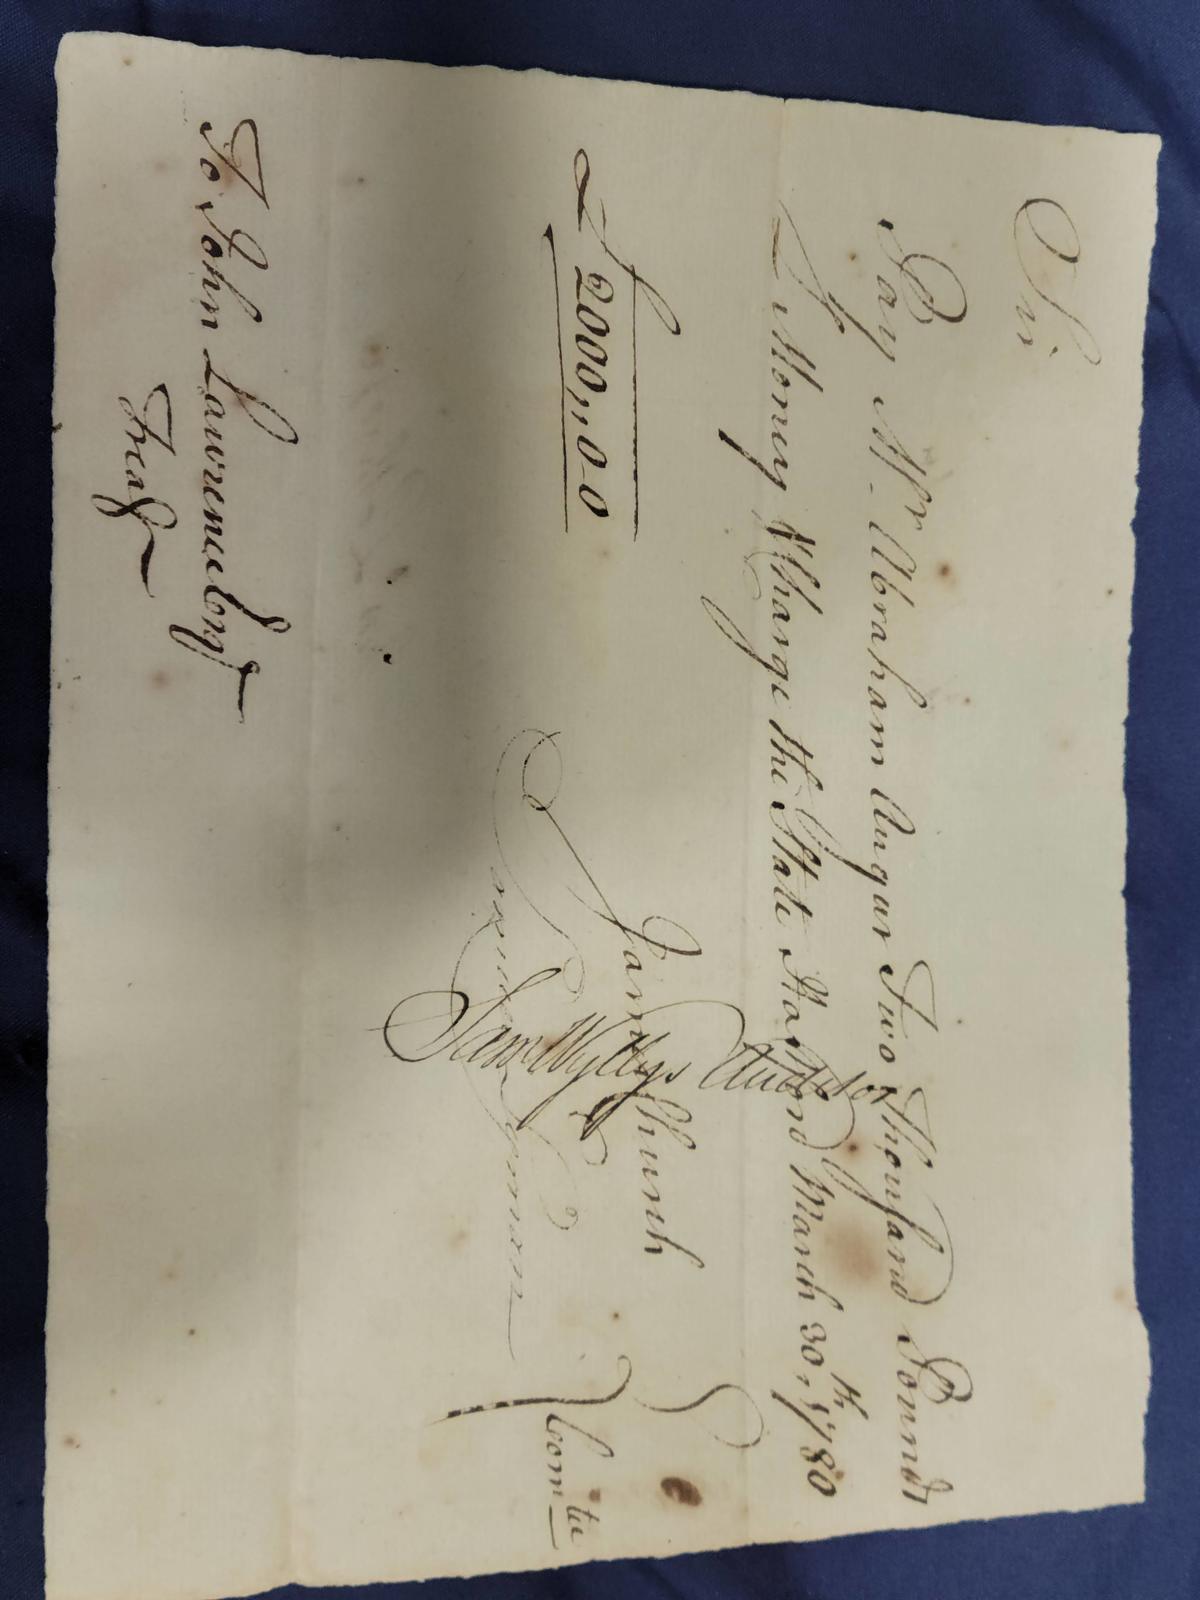 Sir
Pay Mr. Abraham Augur Two Thousand Pounds
L Money & Charge the State Hartford March 30th, 1780
£2000,,0-0
James Church
Sam Wyllys
Comtee
To John Lawrence Esqr
Treasr